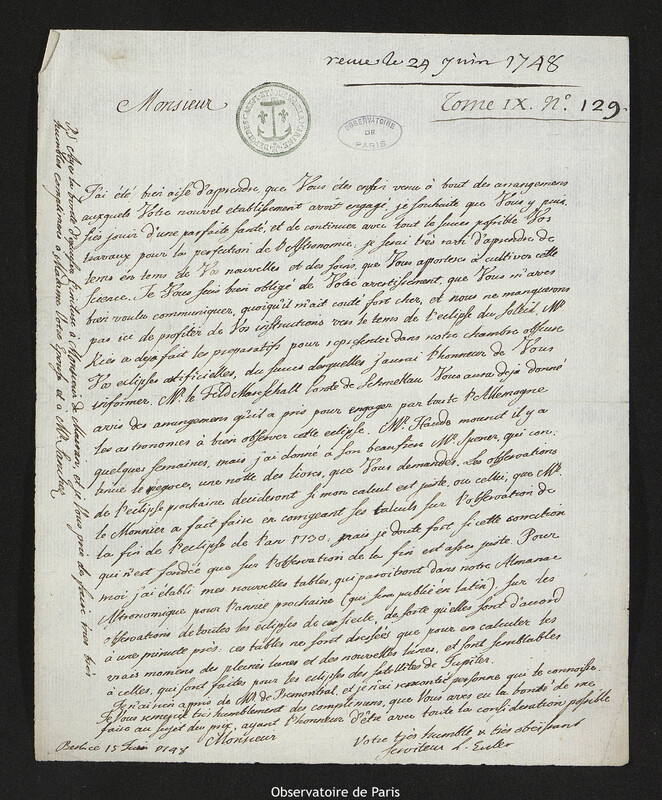 reçue le 24 Juin 1748
Tome IX. N.º 129.
Monsieur
OBSERVATOIRE
DE
PARIS
J'ai été bien aise d'apprendre, que Vous êtes enfin venu à bout des arrangemens
auxquels Votre nouvel etablissement avoit engagé, je souhaite que Vous y puis-
siés jouir d'une parfaite santé, et de continuer avec tout le succes possible Vos
travaux pour la perfection de l'Astronomie; je serai très ravi d'apprendre de
tems en tems de Vos nouvelles et des soins, que Vous apportés à cultiver cette
science. Je Vous suis bien obligé de Votre avertissement, que Vous m'aves
bien voulu communiquer, quoiqu'il m'ait couté fort cher, et nous ne manquerons
pas ici de profiter de Vos instructions vers le tems de l'eclipse du soleil. Mr.
Kies a deja fait les preparatifs pour representer dans notre chambre obscure
des eclipses artificielles, du succes desquelles j'aurai l'honneur de Vous
informer. Mr. le Feld Mareschall Comte de Schmettau Vous aura deja donné
avis des arrangemens qu'il a pris pour engager par toute l'Allemagne
les astronomes à bien observer cette eclipse. Mr. Haude mourut il y a
quelques semaines, mais j'ai donné à son beaufrere Mr. Spener, qui con-
tinue le negoce, une notte des livres, que Vous demandés. Les observations
de l'eclipse prochaine decideront si mon calcul est juste, ou celui, que Mr.
le Monnier a fait faire en corrigeant ses calculs sur l'observation de
la fin de l'eclipse de l'an 1730, mais je doute fort si cette correction
qui n'est fondée que sur l'observation de la fin est assés juste. Pour
moi j'ai établi mes nouvelles tables, qui paroitront dans notre Almanac
Astronomique pour l'année prochaine (qui sera publié en latin), sur les
observations de toutes les eclipses de ce siecle, de sorte qu'elles sont d'accord
à une minute près. ces tables ne sont dressées que pour en calculer les
vrais momens des pleines lunes et des nouvelles lunes, et sont semblables
à celles, qui sont faites pour les eclipses des satellites de Jupiter.
Je n'ai rien apris de Mr. de Premontval, et je n'ai rencontré personne qui le connoisse.
Je Vous remercie très humblement des complimens, que Vous aves eu la bonté de me
faire au sujet du prix, ayant l'honneur d'être avec toute la consideration possible
Monsieur
Votre très humble & très obeissant
serviteur L. Euler
Berlin ce 15 Juin 1748
humbles complimens à Madame Votre Epouse et à Mr.
Observatoire de Paris